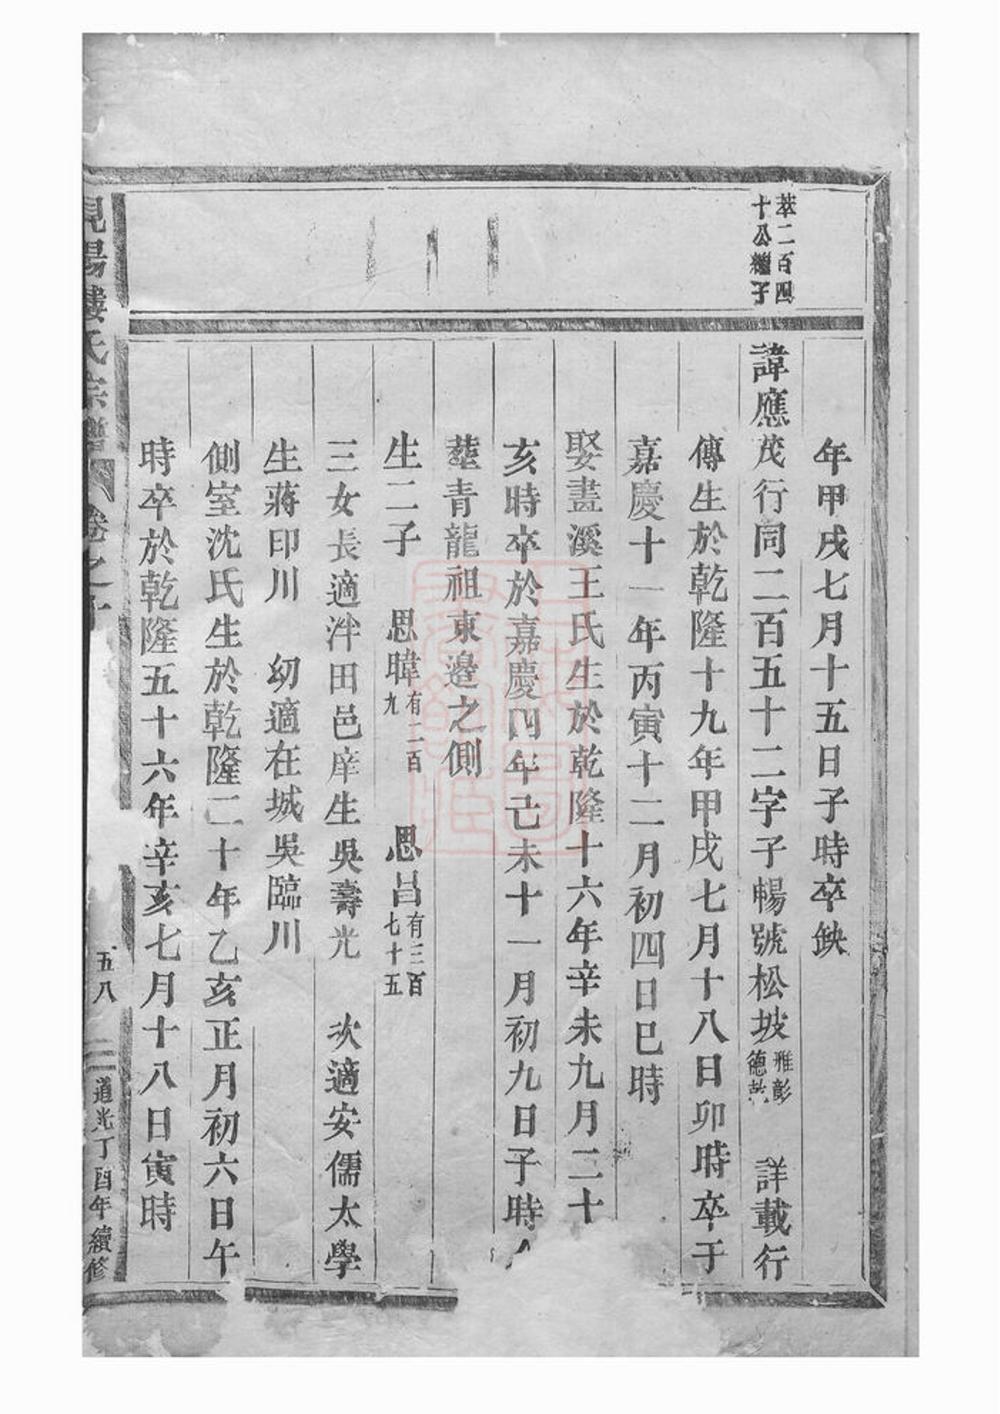 萃二百四
十公繼子
年甲戌七月十五日子時卒缺
諱應茂行同二百五十二字子暢號松坡雅彭德乾 詳載行
傳生於乾隆十九年甲戌七月十八日卯時卒于
嘉慶十一年丙寅十二月初四日巳時
娶畫溪王氏生於乾隆十六年辛未九月二十
亥時卒於嘉慶四年己未十一月初九日子時
塟青龍祖東邉之側
生二子 思暐有二百九 思昌有三百七十五
三女長適泮田邑庠生吳壽光 次適安儒太學
生蔣印川 幼適在城吳臨川
側室沈氏生於乾隆二十年乙亥正月初六日午
時卒於乾隆五十六年辛亥七月十八日寅時
峴陽樓氏宗譜 卷之十
五八
道光丁酉年續修